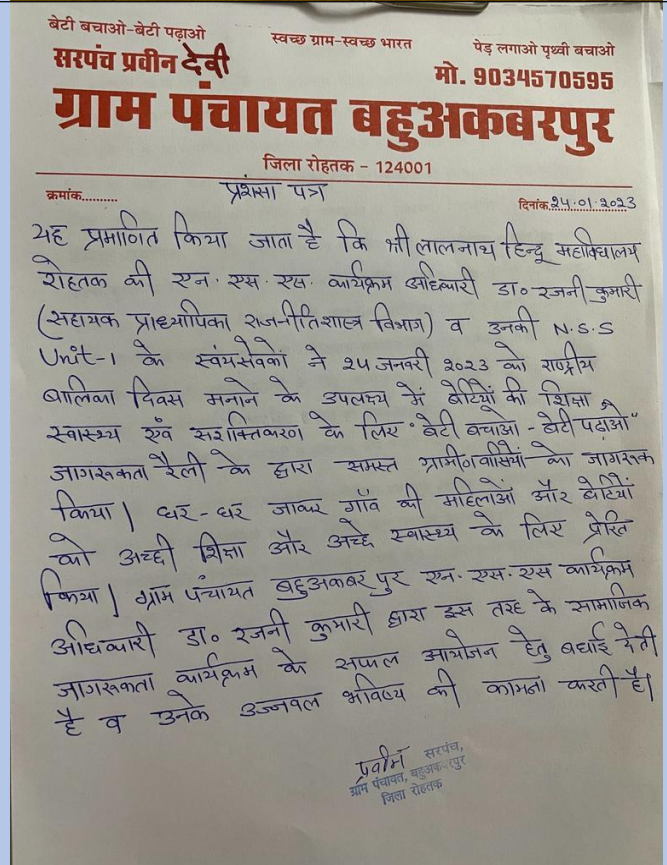 बेटी बचाओ-बेटी पढ़ाओ
स्वच्छ ग्राम-स्वच्छ भारत
पेड़ लगाओ पृथ्वी बचाओ
सरपंच प्रवीन देवी
मो. 9034570595
ग्राम पंचायत बहुअकबरपुर
जिला रोहतक - 124001
क्रमांक..........
प्रशंसा पत्र
दिनांक 24.01.2023
यह प्रमाणित किया जाता है कि श्री लालनाथ हिन्दू महाविद्यालय
रोहतक की एन. एस. एस. कार्यक्रम अधिकारी डा० रजनी कुमारी
(सहायक प्राध्यापिका राजनीतिशास्त्र विभाग) व उनकी N.S.S
Unit-1 के स्वंयसेवकों ने 24 जनवरी 2023 को राष्ट्रीय
बालिका दिवस मनाने के उपलक्ष्य में बेटियों की शिक्षा,
स्वास्थ्य एवं सशक्तिकरण के लिए "बेटी बचाओ - बेटी पढ़ाओ"
जागरूकता रैली के द्वारा समस्त ग्रामीणवासियों को जागरूक
किया | घर-घर जाकर गाँव की महिलाओं और बेटियों
को अच्छी शिक्षा और अच्छे स्वास्थ्य के लिए प्रेरित
किया | ग्राम पंचायत बहुअकबरपुर एन. एस. एस कार्यक्रम
अधिकारी डा० रजनी कुमारी द्वारा इस तरह के सामाजिक
जागरूकता कार्यक्रम के सफल आयोजन हेतु बधाई देती
है व उनके उज्जवल भविष्य की कामना करती है।
प्रवीन
सरपंच,
ग्राम पंचायत, बहुअकबरपुर
जिला रोहतक